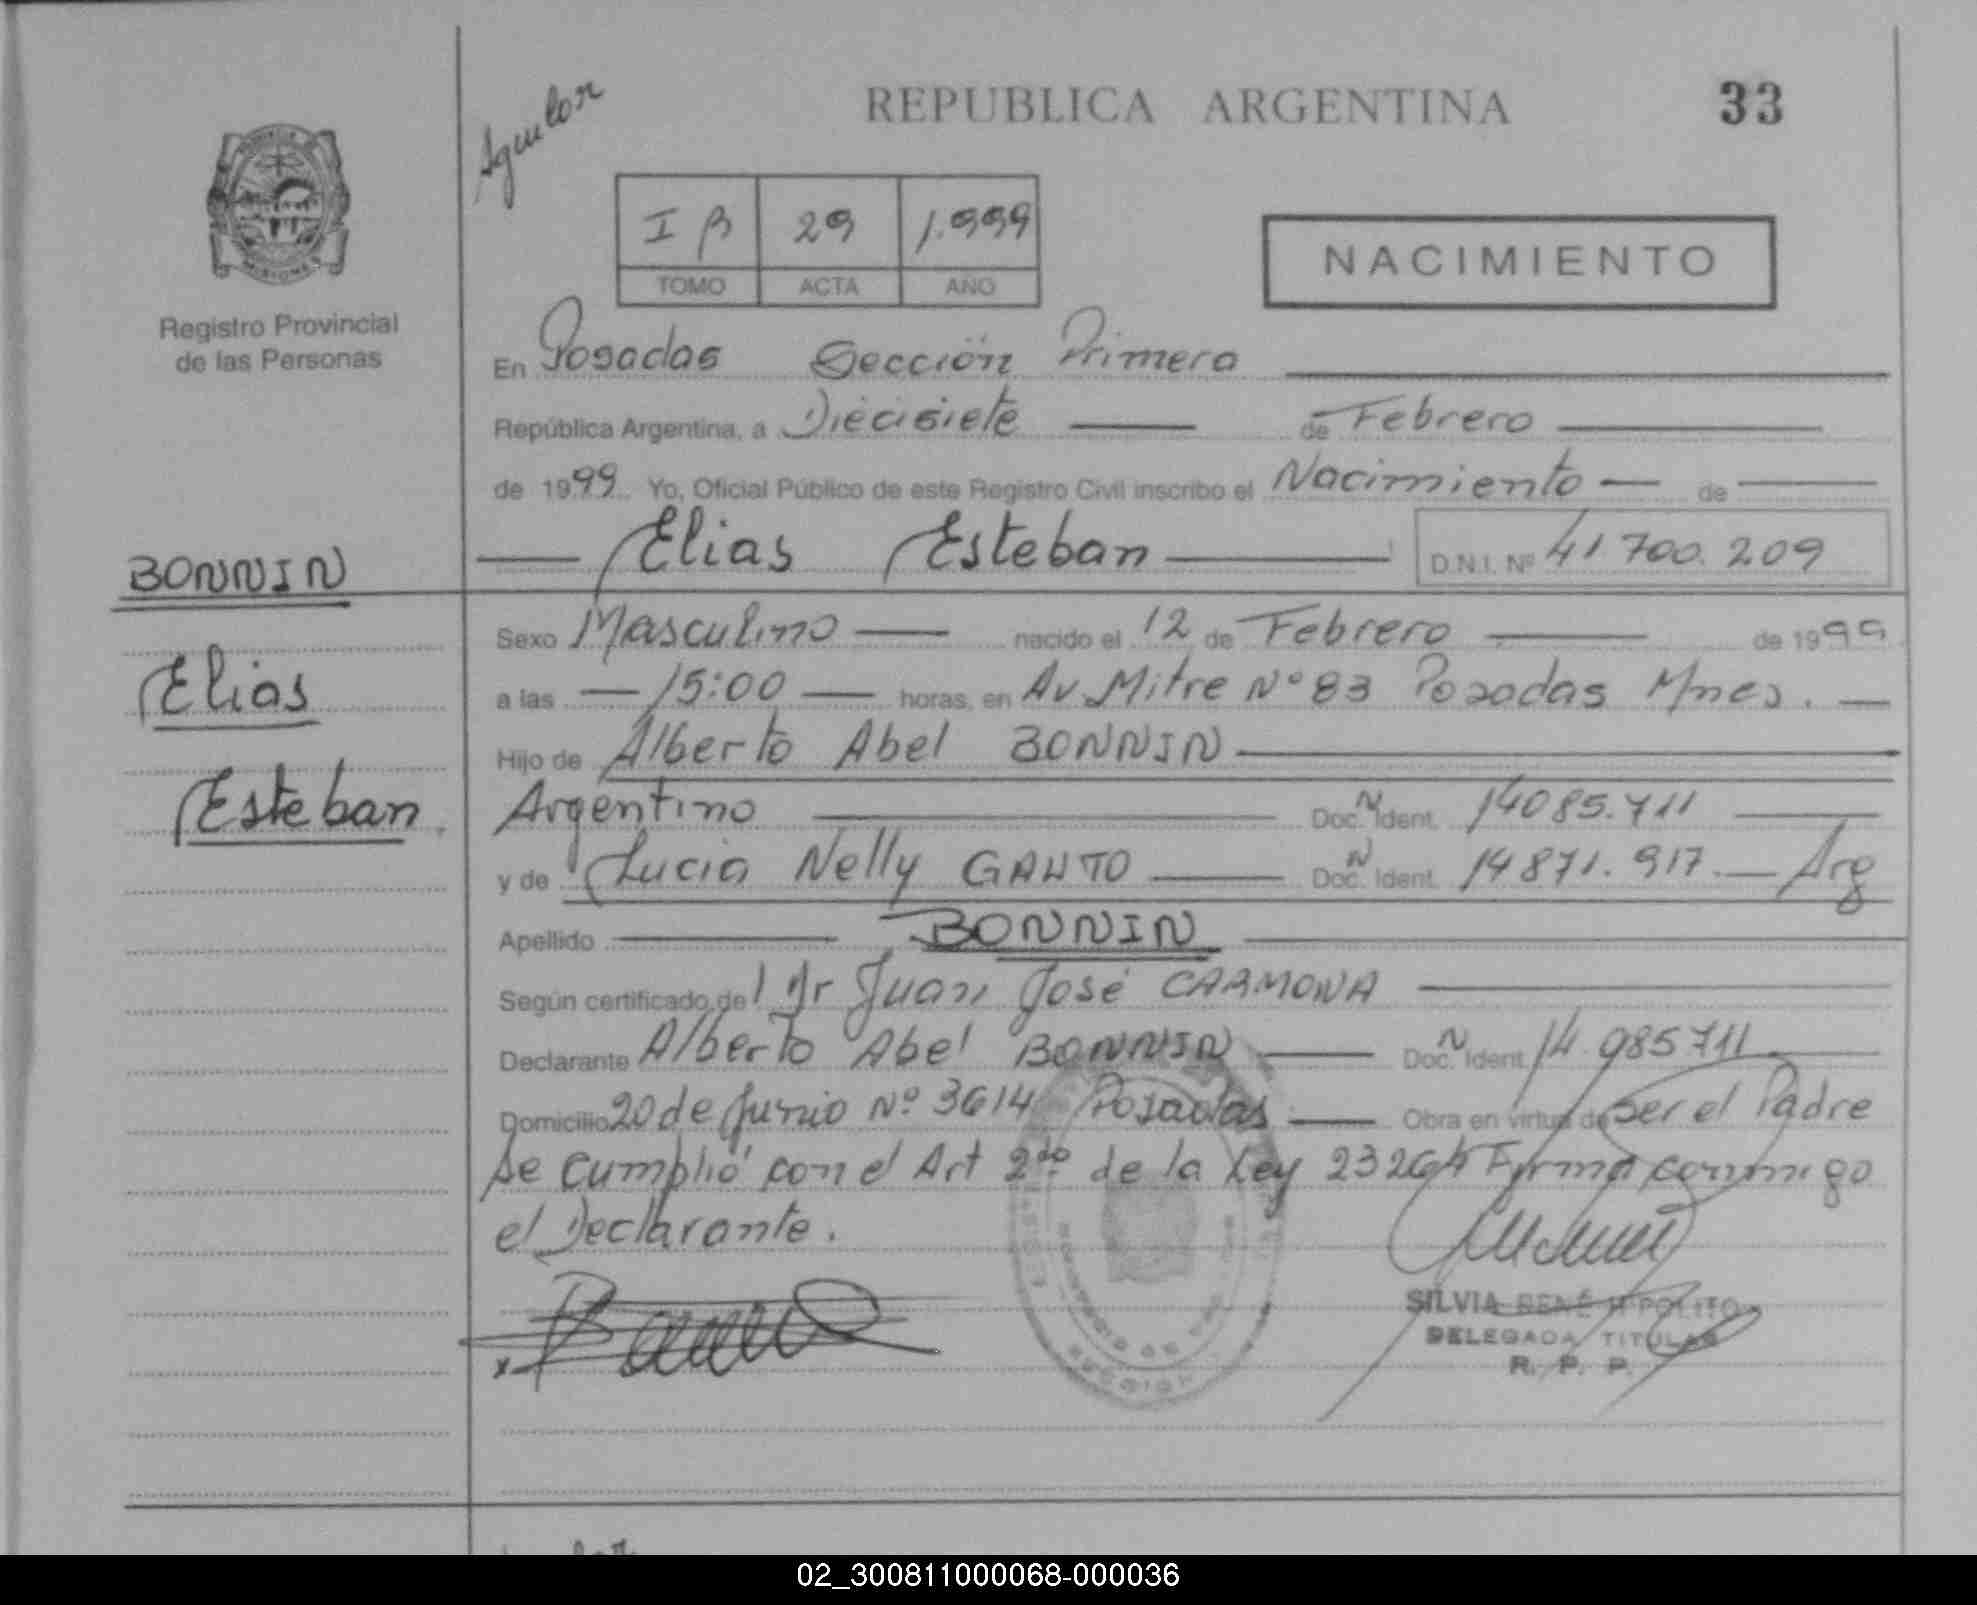 Aguilar
REPUBLICA ARGENTINA
33
I B 29 1.999
TOMO ACTA AÑO
NACIMIENTO
Registro Provincial
de las Personas
En Posadas Sección Primera
República Argentina, a Diecisiete de Febrero
de 1999 Yo, Oficial Público de este Registro Civil inscribo el Nacimiento de
Elias Esteban D.N.I. Nº 41.700.209
BONNIN
Elias
Esteban
Sexo Masculino nacido el 12 de Febrero de 1999
a las 15:00 horas, en Av Mitre Nº 83 Posadas Mnes.
Hijo de Alberto Abel BONNIN
Argentino Doc. N Ident. 14085.711
y de Lucia Nelly GAUTO Doc. N Ident. 14871.917. Arg
Apellido BONNIN
Según certificado del Dr Juan José CARMONA
Declarante Alberto Abel BONNIN Doc. N Ident. 14.085711
Domicilio 20 de Junio Nº 3614 Posadas Obra en virtud de ser el Padre
se cumplió con el Art 2do de la Ley 23264 Firma conmigo
el Declarante.
SILVIA RENÉ HIPOLITO
DELEGADA TITULAR
R. P. P.
02_300811000068-000036